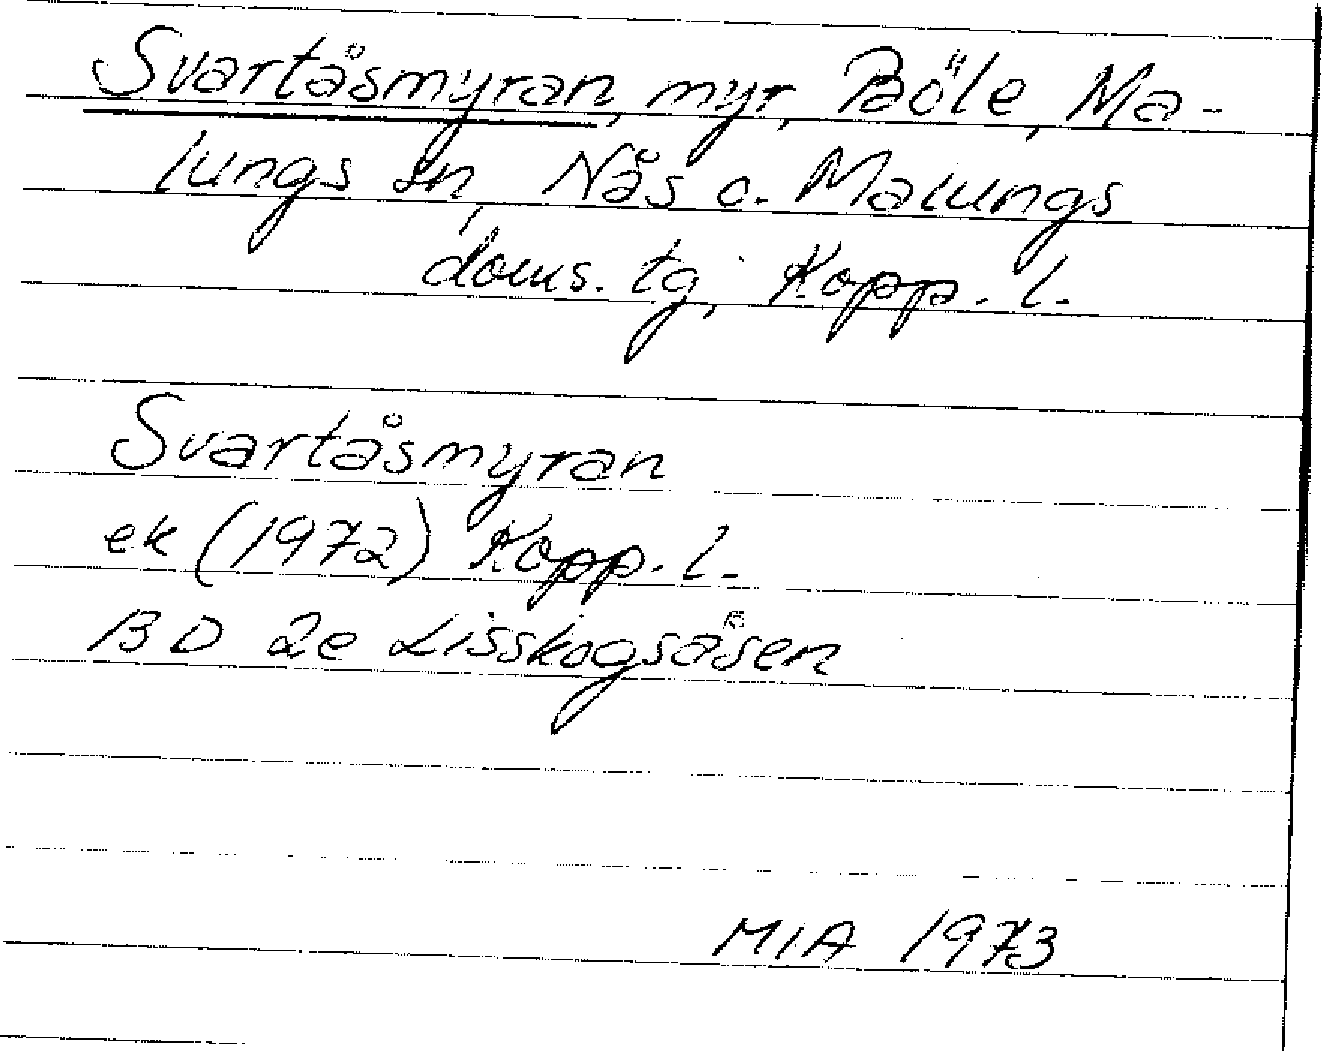 Svartåsmyran, myr, Böle, Ma-
lungs sn, Nås o. Malungs
doms. tg, Kopp. l.
Svartåsmyran
ek (1972) Kopp. l.
13 D 2e Lisskogsåsen
MIA 1973